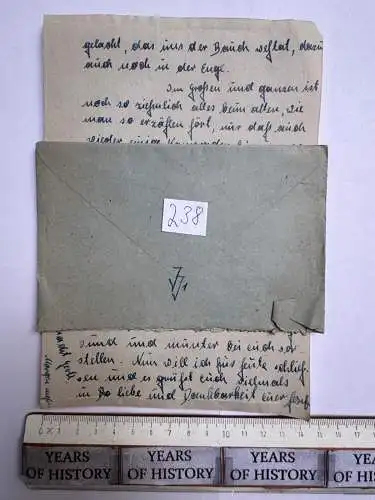 gelacht, das uns der Bauch wehtat, dazu
auch noch in der Enge.
Im großen und ganzen ist
noch so ziehmlich alles beim alten, wie
man so erzählen hört, nur daß auch
wieder einige
238
sund und munter bei euch vor
stellen. Nun will ich für heute schließ
sen und es grüßt euch vielmals
in Liebe und Dankbarkeit euer
0 1 2 3 4 5 6 7 8 9 10 11 12 13 14 15 16 17 18
YEARS OF HISTORY
YEARS OF HISTORY
YEARS OF HISTORY
YEARS OF HISTORY